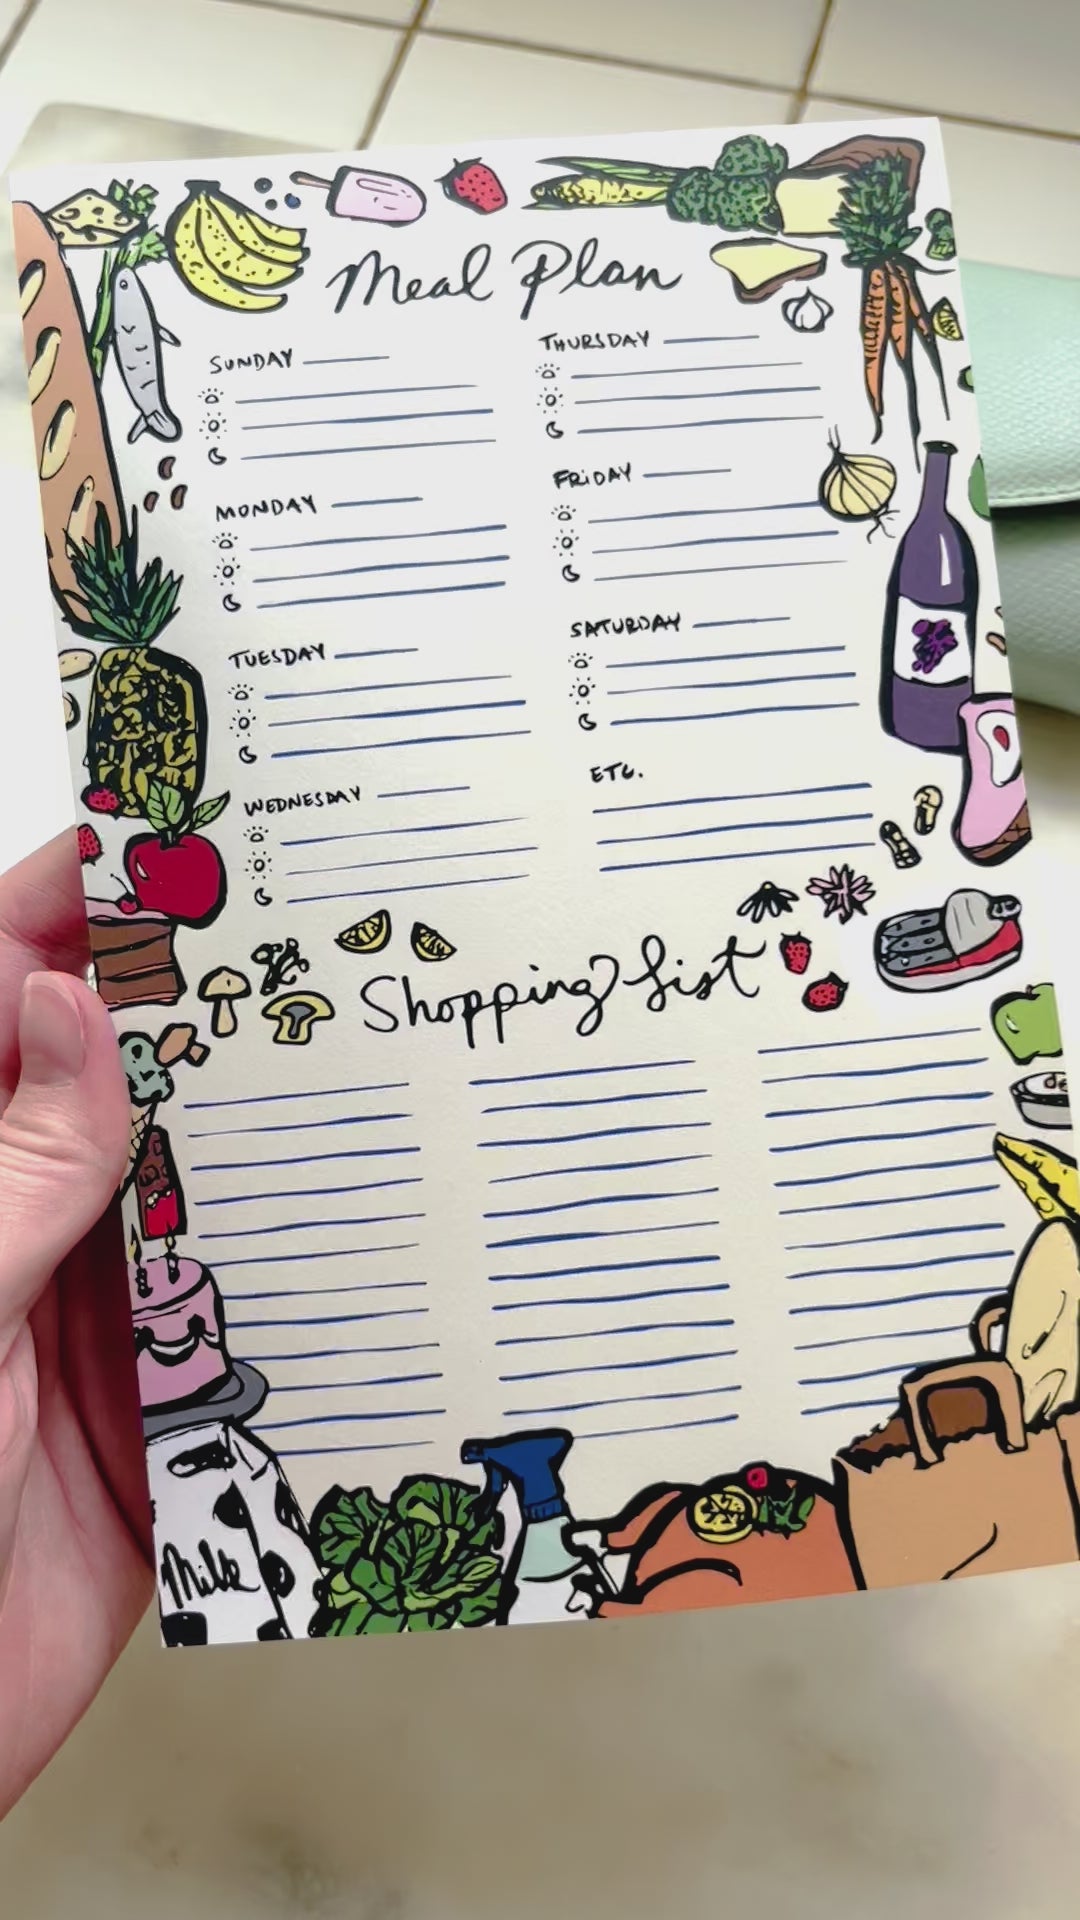 Meal Plan
SUNDAY
MONDAY
TUESDAY
WEDNESDAY
THURSDAY
FRiDAY
SATURDAY
ETC.
Shopping List
de
Milk